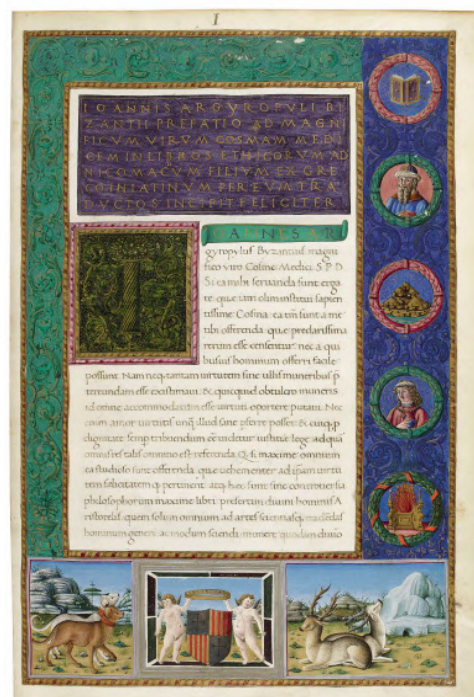 I
IOANNIS ARGYROPULI BI
ZANTII PREFATIO AD MAGNI
FICUM VIRUM COSMAM MEDI
CEM IN LIBROS ETHICORUM AD
NICOMACUM FILIUM EX GRE
CO IN LATINUM PER EUM TRA
DUCTOS INCIPIT FELICITER
IOANNES AR
gyropylus Byzantius magni
fico viro Cosme Medici S P D
Si ea mihi servanda sunt erga
te que iam olim institui sapien
tissime Cosma ea tibi sunt a me
tibi offerenda que preclarissima
rerum esse censentur nec a qui
busuis hominum offerri facile
possunt Nam neq tantam virtutem sine ullis muneribus
esse existimavi & quicquid obtulero muneris
id omne accommodatum esse virtuti oportere putavi Nec
enim amor virtuti unq illud sane prestare posset & cuiq p
dignitate semp tribuendum esse videtur iustitie lege ad quam
omnis res talis omnino est referenda Q si maxime omnium
ea studiosis sunt offerenda que vehementer ad ipsam virtu
tem pertinent atq hec sunt sine controversia
philosophorum maxime libri presertim divini hominis A
ristotelis quem solum omnium ad artes scientiasq tradendas
hominum generi ac modum sciendi munere quodam divino